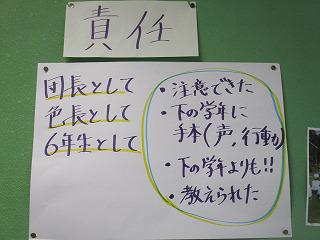 責任
団長として
色長として
6年生として
・注意できた
・下の学年に
手本(声,行動)
・下の学年よりも!!
・教えられた